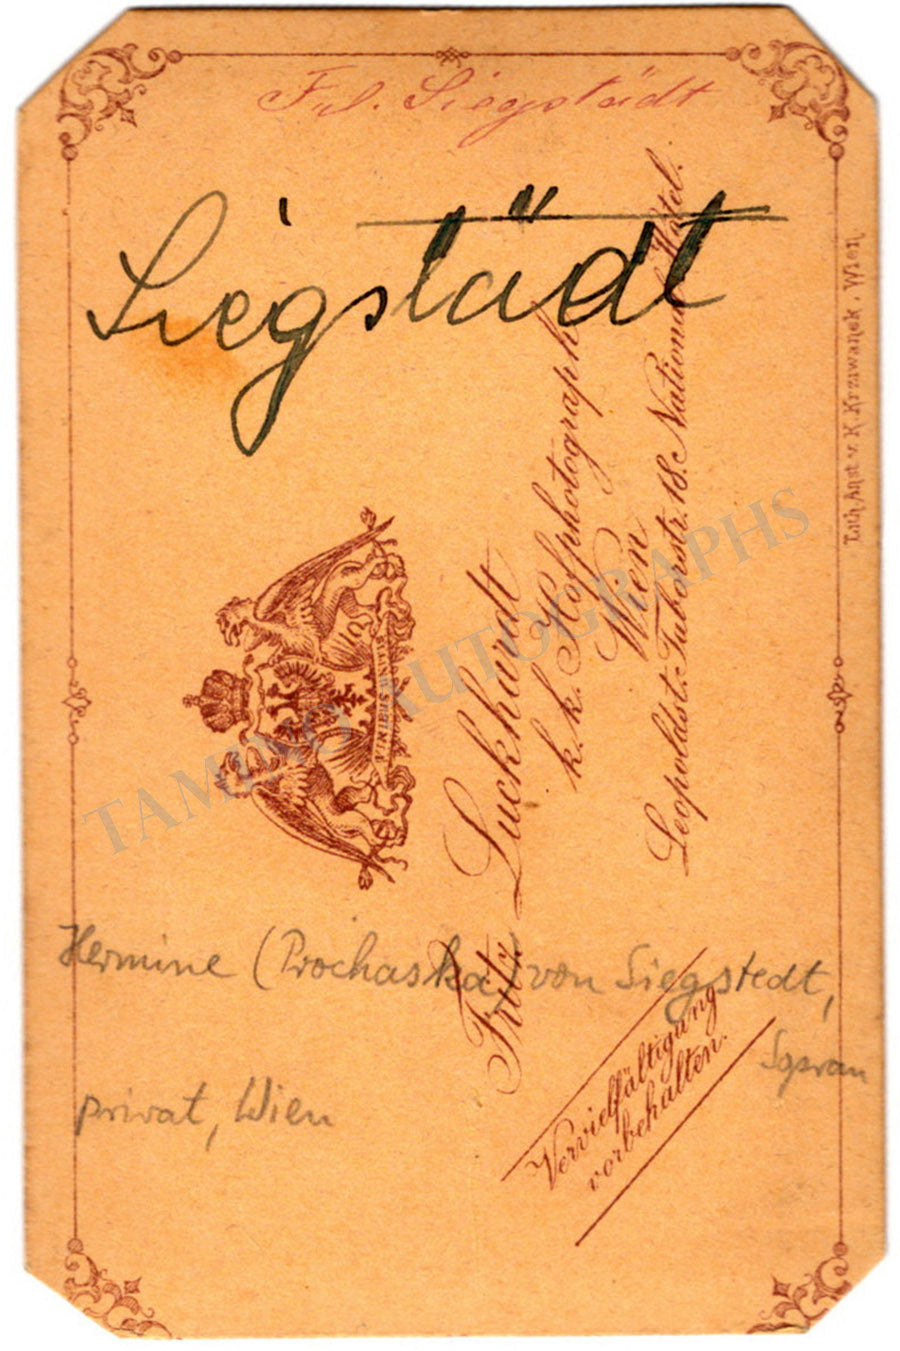 Frl. Siegstädt
Siegstädt
VIRIBUS UNITIS
Fritz Luckhardt
k.k. Hofphotograph
Wien
Leopoldst. Taborstr. 18. National Hôtel.
Lith. Anst. v. K. Krziwanek. Wien
TAMINO AUTOGRAPHS
Hermine (Prochaska) von Siegstedt,
Sopran
privat, Wien
Vervielfältigung
vorbehalten.